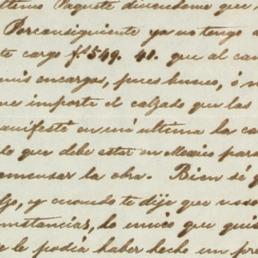 ultimo Paquete diciendome que
Porconsiguiente ya no tengo a
te cargo ps. 549. 41. que al cam
mis encargos, pues bueno, ó m
ue importe el calzado que las
anifesté en mi ultima la ca
lo que debe estar en Mexico para
comensar la obra. Bien sé q
lzo, y cuando te dije que nos
mstancias, lo unico que quis
e le podia haber hecho un pre